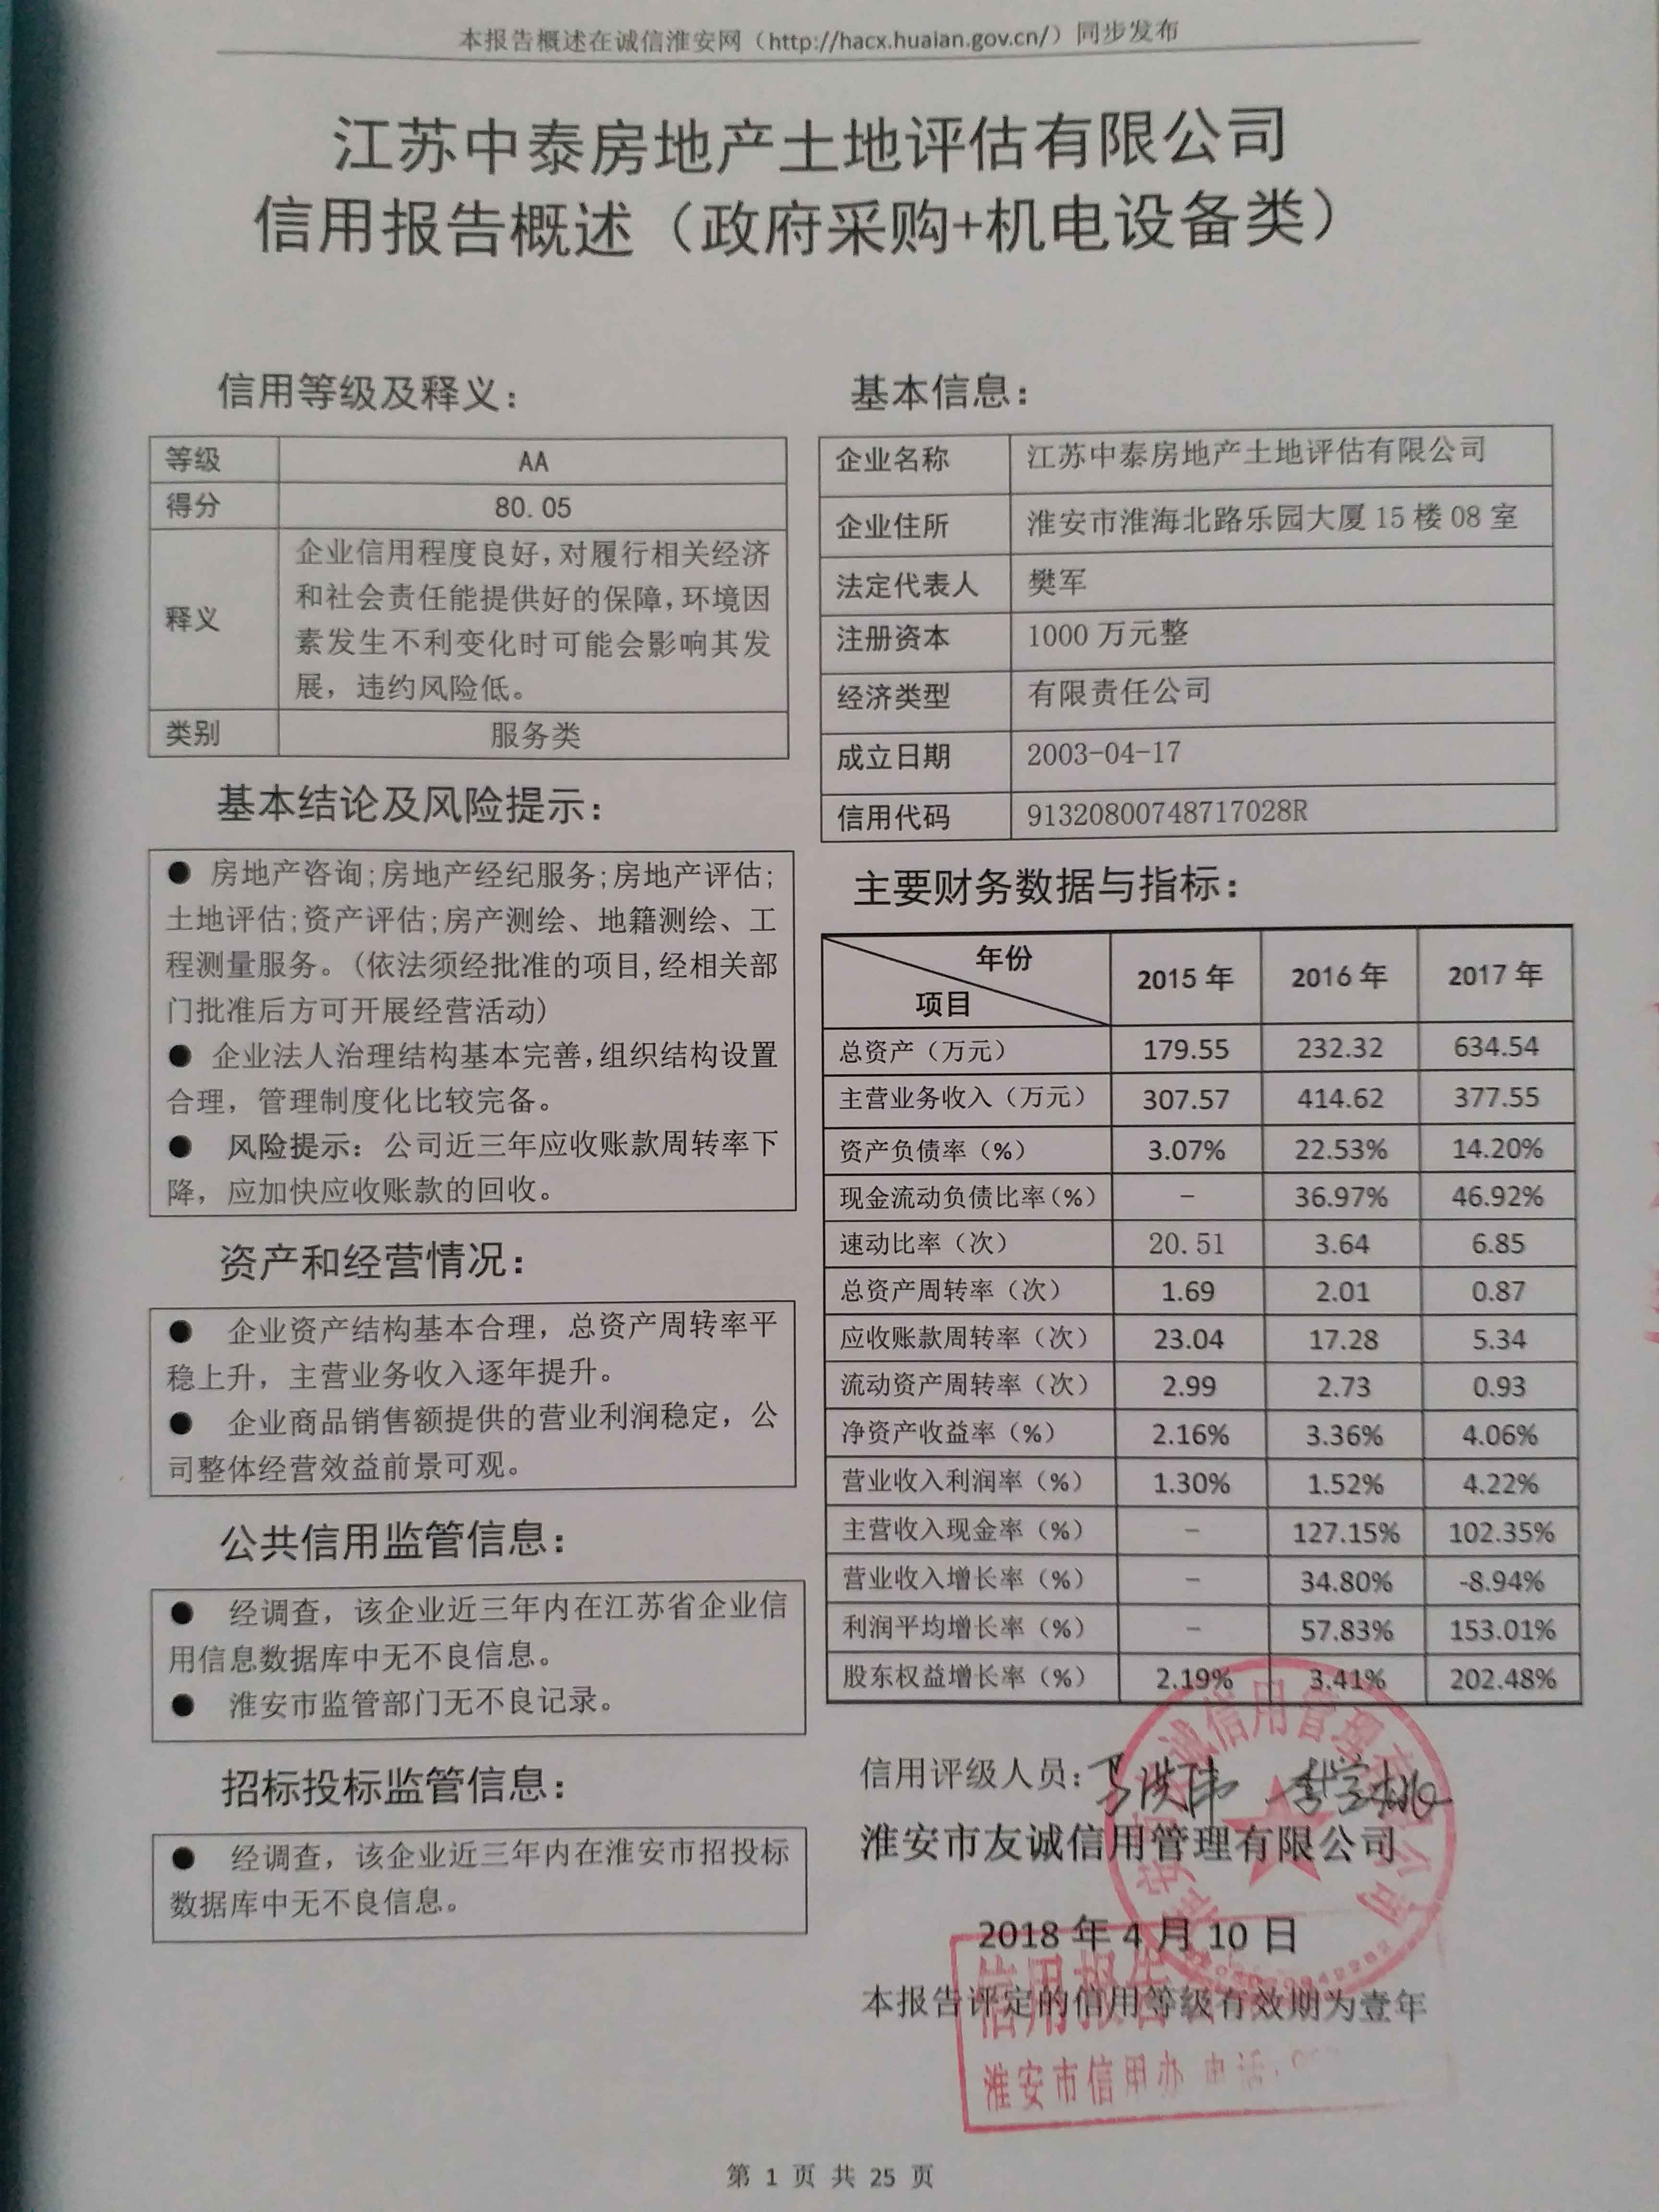 本报告概述在诚信淮安网（http://hacx.huaian.gov.cn/）同步发布
江苏中泰房地产土地评估有限公司
信用报告概述（政府采购+机电设备类）
信用等级及释义：
等级 AA
得分 80.05
释义
企业信用程度良好，对履行相关经济
和社会责任能提供好的保障，环境因
素发生不利变化时可能会影响其发
展，违约风险低。
类别 服务类
基本结论及风险提示：
● 房地产咨询;房地产经纪服务;房地产评估;
土地评估;资产评估;房产测绘、地籍测绘、工
程测量服务。(依法须经批准的项目,经相关部
门批准后方可开展经营活动)
● 企业法人治理结构基本完善,组织结构设置
合理，管理制度化比较完备。
● 风险提示：公司近三年应收账款周转率下
降，应加快应收账款的回收。
资产和经营情况：
● 企业资产结构基本合理，总资产周转率平
稳上升，主营业务收入逐年提升。
● 企业商品销售额提供的营业利润稳定，公
司整体经营效益前景可观。
公共信用监管信息：
● 经调查，该企业近三年内在江苏省企业信
用信息数据库中无不良信息。
● 淮安市监管部门无不良记录。
招标投标监管信息：
● 经调查，该企业近三年内在淮安市招投标
数据库中无不良信息。
基本信息：
企业名称 江苏中泰房地产土地评估有限公司
企业住所 淮安市淮海北路乐园大厦 15 楼 08 室
法定代表人 樊军
注册资本 1000 万元整
经济类型 有限责任公司
成立日期 2003-04-17
信用代码 91320800748717028R
主要财务数据与指标：
年份 项目 2015 年 2016 年 2017 年
总资产（万元） 179.55 232.32 634.54
主营业务收入（万元） 307.57 414.62 377.55
资产负债率（%） 3.07% 22.53% 14.20%
现金流动负债比率(%) – 36.97% 46.92%
速动比率（次） 20.51 3.64 6.85
总资产周转率（次） 1.69 2.01 0.87
应收账款周转率（次） 23.04 17.28 5.34
流动资产周转率（次） 2.99 2.73 0.93
净资产收益率（%） 2.16% 3.36% 4.06%
营业收入利润率（%） 1.30% 1.52% 4.22%
主营收入现金率（%） – 127.15% 102.35%
营业收入增长率（%） – 34.80% -8.94%
利润平均增长率（%） – 57.83% 153.01%
股东权益增长率（%） 2.19% 3.41% 202.48%
信用评级人员：
淮安市友诚信用管理有限公司
2018 年 4 月 10 日
本报告评定的信用等级有效期为壹年
信用报告
淮安市信用办 电话:
第 1 页 共 25 页